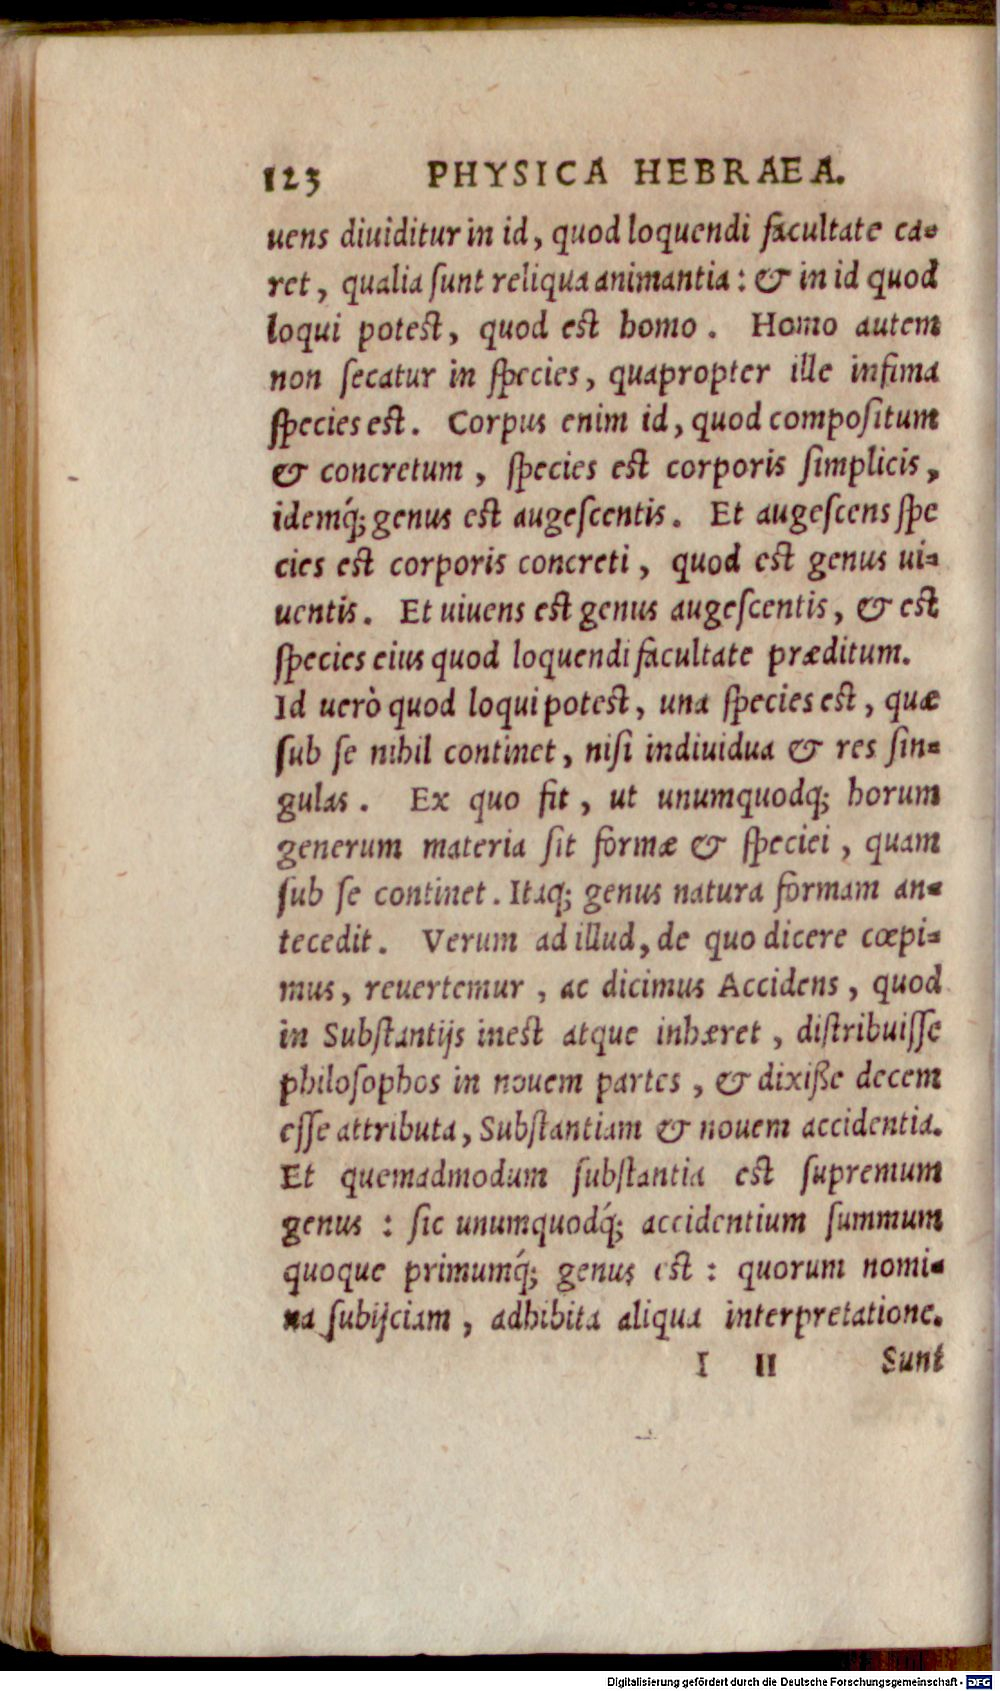 123 PHYSICA HEBRAEA.
uens diuiditur in id, quod loquendi facultate ca-
ret, qualia ſunt reliqua animantia: & in id quod
loqui potest, quod est homo. Homo autem
non ſecatur in ſpecies, quapropter ille infima
ſpecies est. Corpus enim id, quod compoſitum
& concretum, ſpecies est corporis ſimplicis,
idemq́; genus est augeſcentis. Et augeſcens ſpe
cies est corporis concreti, quod est genus ui-
uentis. Et uiuens est genus augeſcentis, & est
ſpecies eius quod loquendi facultate præditum.
Id uerò quod loqui potest, una ſpecies est, quæ
ſub ſe nihil continet, niſi indiuidua & res ſin-
gulas. Ex quo fit, ut unumquodq; horum
generum materia ſit formæ & ſpeciei, quam
ſub ſe continet. Itaq; genus natura formam an-
tecedit. Verum ad illud, de quo dicere cœpi-
mus, reuertemur, ac dicimus Accidens, quod
in Subſtantijs inest atque inhæret, diſtribuiſſe
philoſophos in nouem partes, & dixiße decem
eſſe attributa, Subſtantiam & nouem accidentia.
Et quemadmodum ſubſtantia est ſupremum
genus: ſic unumquodq́; accidentium ſummum
quoque primumq́; genus est: quorum nomi-
na ſubijciam, adhibita aliqua interpretatione.
I II Sunt
Digitalisierung gefördert durch die Deutsche Forschungsgemeinschaft - DFG